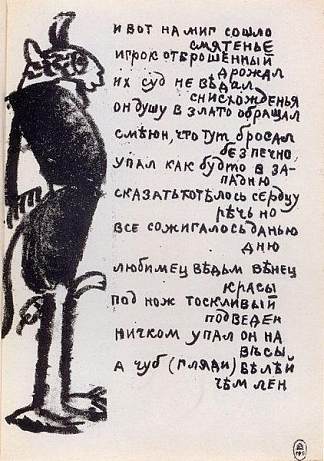 и вот на миг сошло
смятенье
игрок отброшенный
дрожал
их суд не вѣдал
снисхожденья
он душу в злато обращал
смѣюн, что тут бросал
безпечно
упал как будто в за-
падню
сказать хотѣлось сердцу
рѣчь но
все сожигалось данью
дню
любимец вѣдьм вѣнец
красы
под нож тоскливый
подведен
ничком упал он на
вѣсы
а чуб (гляди) бѣлѣй
чѣм лен